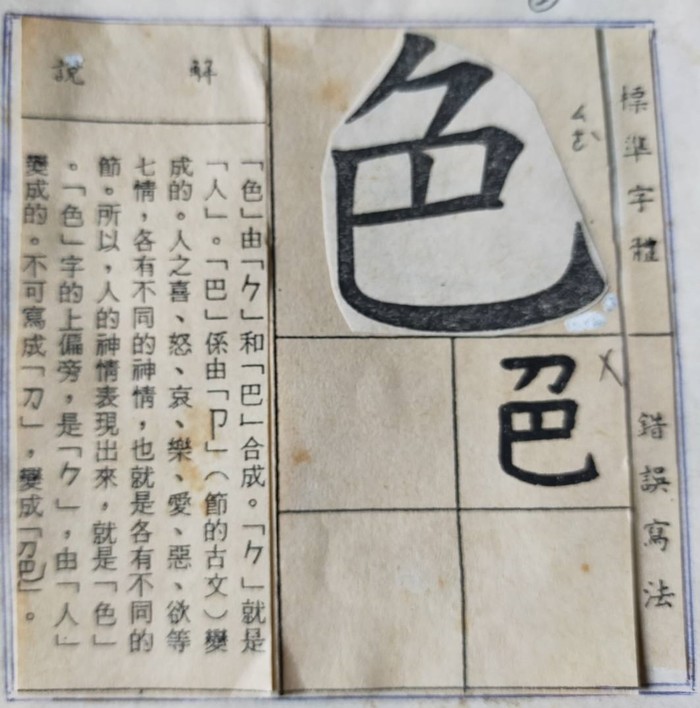 標準字體
色
ㄙㄜˋ
錯誤寫法
X
解說
「色」由「⺈」和「巴」合成。「⺈」就是
「人」。「巴」係由「卩」（節的古文）變
成的。人之喜、怒、哀、樂、愛、惡、欲等
七情，各有不同的神情，也就是各有不同的
節。所以，人的神情表現出來，就是「色」
。「色」字的上偏旁，是「⺈」，由「人」
變成的。不可寫成「刀」，變成「⿱刀巴」。